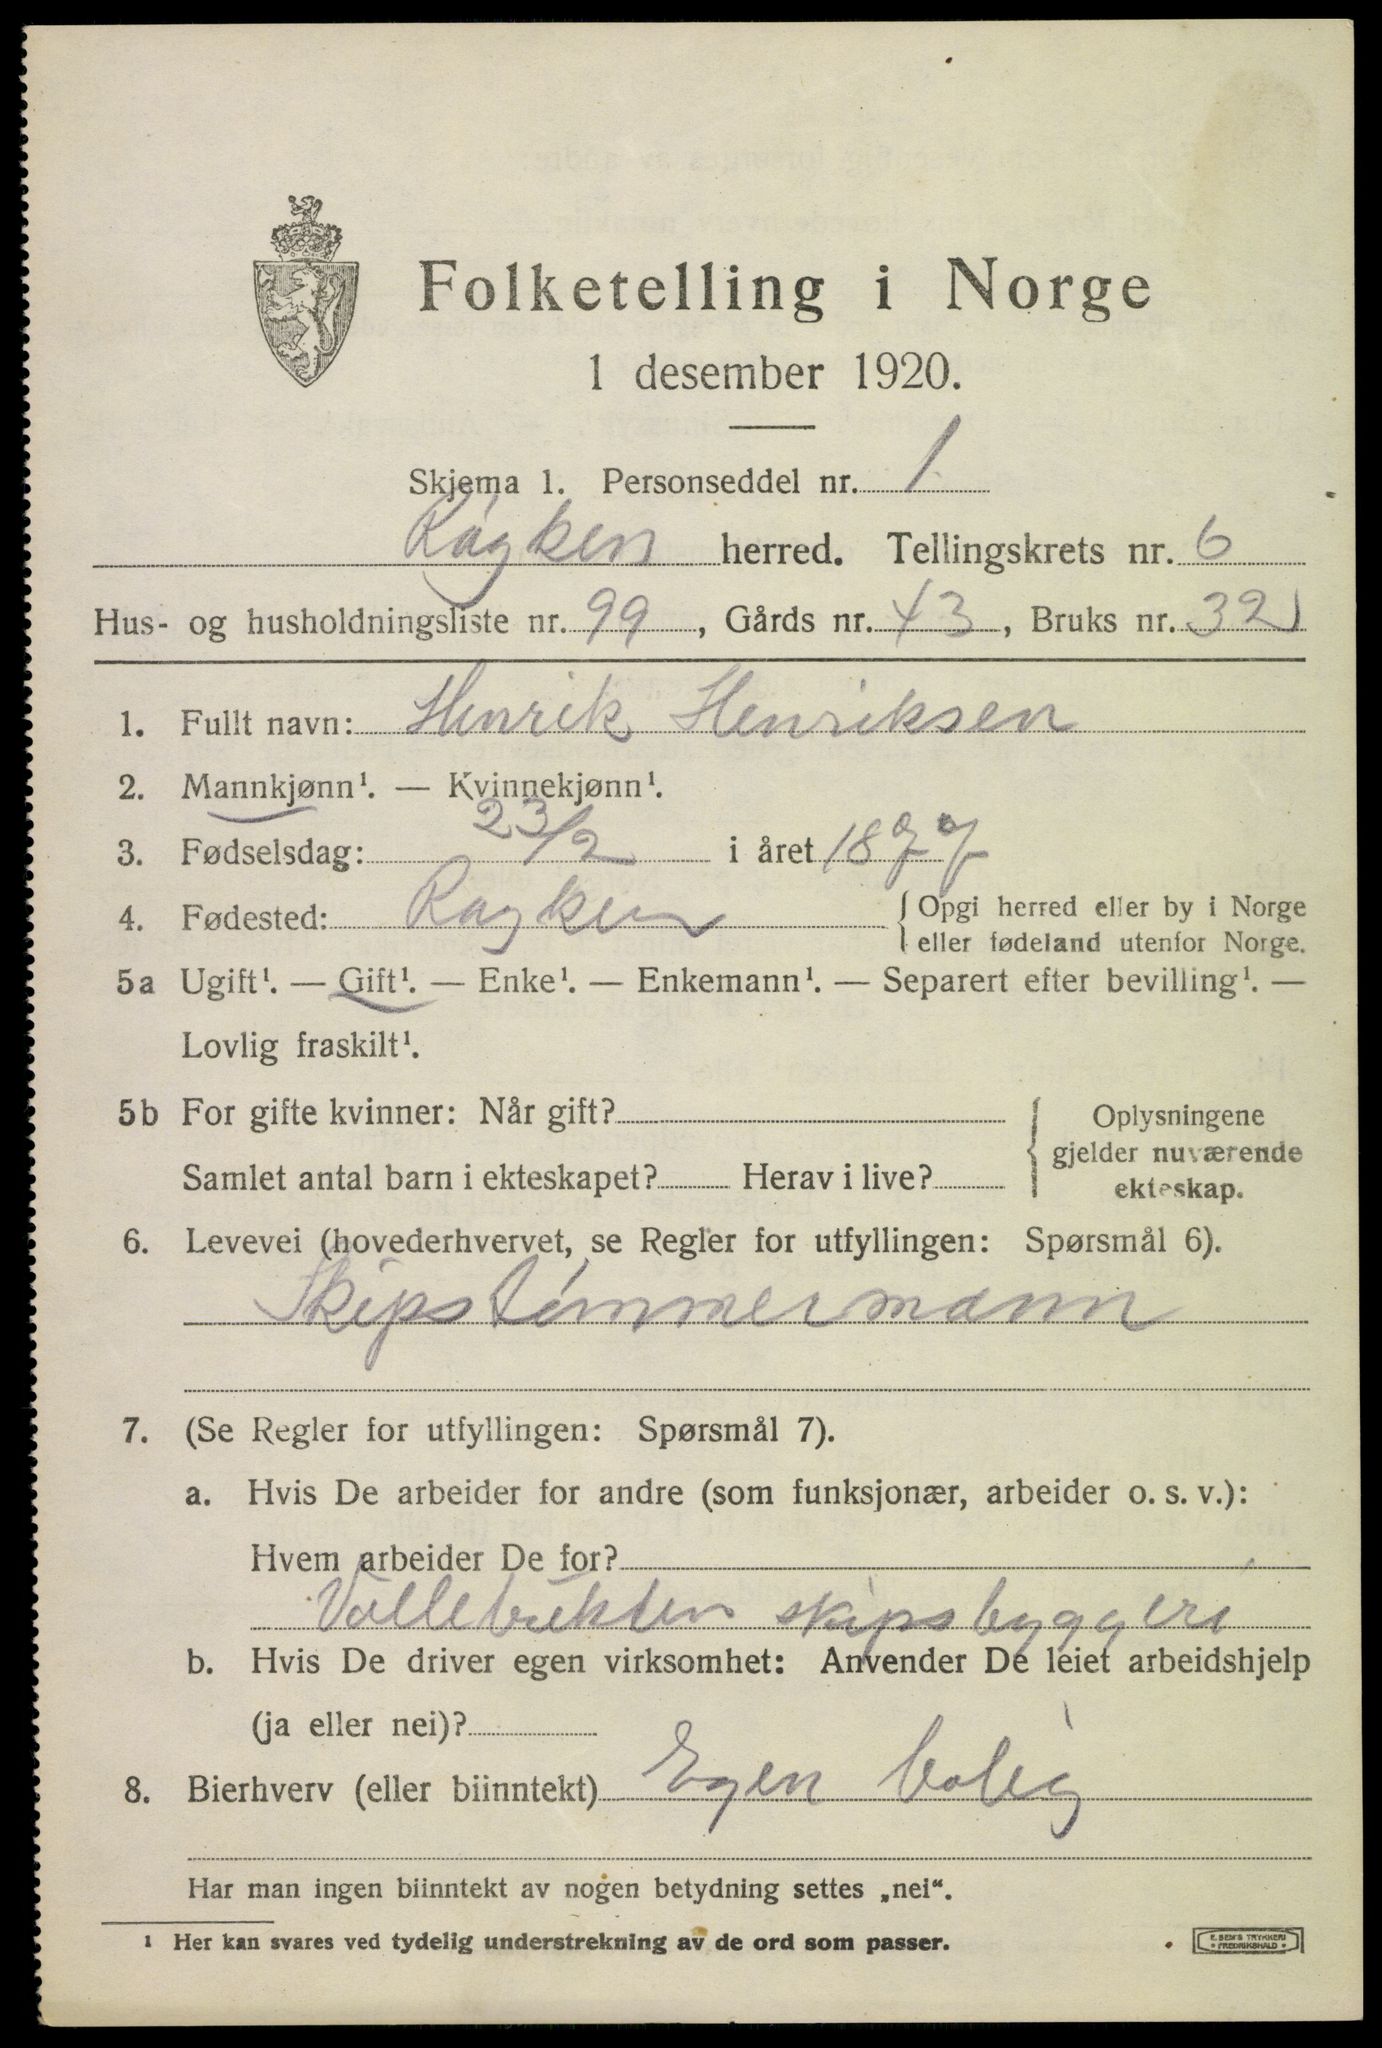 Folketelling i Norge
1 desember 1920.
Skjema 1. Personseddel nr. 1
Røyken herred. Tellingskrets nr. 6
Hus- og husholdningsliste nr. 99, Gårds nr. 43, Bruks nr. 32
1. Fullt navn: Henrik Henriksen
2. Mannkjønn¹. — Kvinnekjønn¹.
3. Fødselsdag: 23/2 i året 1877
4. Fødested: Røyken { Opgi herred eller by i Norge
eller fødeland utenfor Norge.
5a Ugift¹. — Gift¹. — Enke¹. — Enkemann¹. — Separert efter bevilling¹. —
Lovlig fraskilt¹.
5b For gifte kvinner: Når gift? { Oplysningene
gjelder nuværende
Samlet antal barn i ekteskapet? Herav i live? ekteskap.
6. Levevei (hovederhvervet, se Regler for utfyllingen: Spørsmål 6).
Skipstømmermann
7. (Se Regler for utfyllingen: Spørsmål 7).
a. Hvis De arbeider for andre (som funksjonær, arbeider o. s. v.):
Hvem arbeider De for?
Vollebukten skipsbyggeri
b. Hvis De driver egen virksomhet: Anvender De leiet arbeidshjelp
(ja eller nei)?
8. Bierhverv (eller biinntekt) Egen bolig
Har man ingen biinntekt av nogen betydning settes „nei“.
¹ Her kan svares ved tydelig understrekning av de ord som passer.
E. SEM'S TRYKKERI
• FREDRIKSHALD •